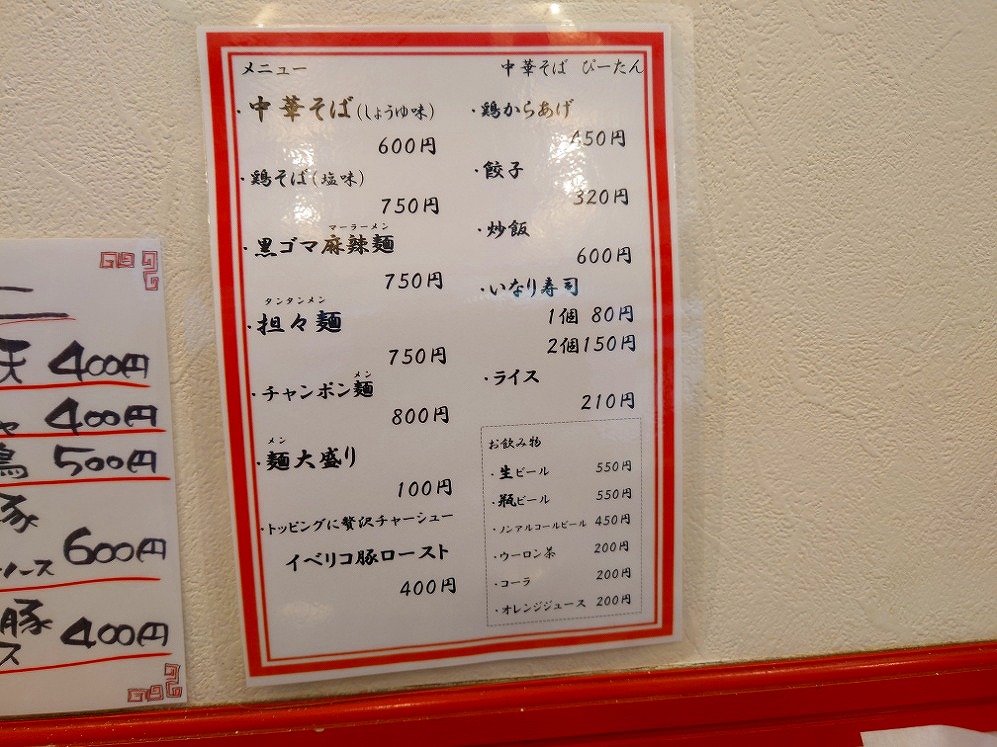 メニュー
中華そば ぴーたん
・中華そば(しょうゆ味)
600円
・鶏そば(塩味)
750円
マーラーメン
・黒ゴマ麻辣麺
750円
タンタンメン
・担々麺
750円
メン
・チャンポン麺
800円
メン
・麺大盛り
100円
・トッピングに贅沢チャーシュー
イベリコ豚ロースト
400円
・鶏からあげ
450円
・餃子
320円
・炒飯
600円
・いなり寿司
1個 80円
2個150円
・ライス
210円
お飲み物
・生ビール 550円
・瓶ビール 550円
・ノンアルコールビール 450円
・ウーロン茶 200円
・コーラ 200円
・オレンジジュース 200円
ー
天 400円
ャ 400円
500円
豚
ソース 600円
豚
ス 400円